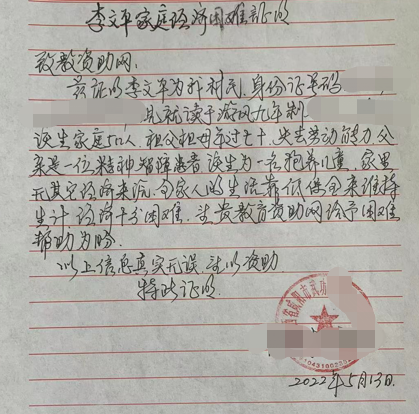 李文平家庭经济困难证明
致教资助网:
兹证明李文平为我村村民,身份证号码
其就读于游凤九年制
该生家庭5口人,祖父祖母年过七十,失去劳动能力父
亲是一位精神智障患者该生为一名抱养儿童,家里
无其它经济来源,句家人的生活靠低保金来维持
生计,经济十分困难,请贵教育资助网给予困难
帮助为盼.
以上信息真实无误,请以资助
特此证明.
省咸阳市武功
2022年5月13日.